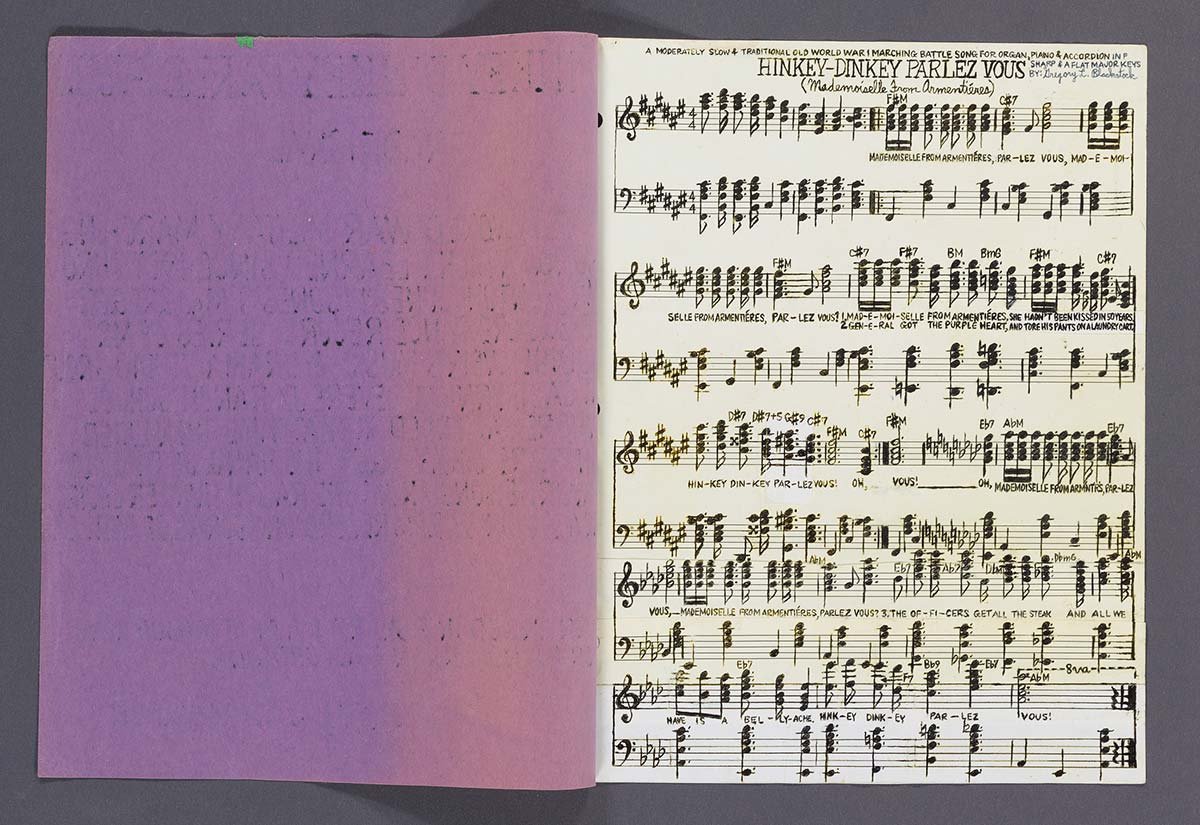 A MODERATELY SLOW & TRADITIONAL OLD WORLD WAR I MARCHING BATTLE SONG FOR ORGAN, PIANO & ACCORDION IN F
SHARP & A FLAT MAJOR KEYS
HINKEY-DINKEY PARLEZ VOUS
BY: Gregory L. Blackstock
(Mademoiselle From Armentières)
F#M C#7
4 4
MADEMOISELLE FROM ARMENTIÉRES, PAR-LEZ VOUS, MAD-E-MOI-
4 4
F#M C#7 F#7 BM Bm6 F#M C#7
SELLE FROM ARMENTIÉRES, PAR-LEZ VOUS? 1. MAD-E-MOI-SELLE FROM ARMENTIÉRES, SHE HADN'T BEEN KISSED IN 50 YEARS,
2. GEN-E-RAL GOT THE PURPLE HEART, AND TORE HIS PANTS ON A LAUNDRY CART,
D#7 D#7+5 G#9 C#7 F#M C#7 F#M Eb7 AbM Eb7
HIN-KEY DIN-KEY PAR-LEZ VOUS! OH, VOUS! OH, MADEMOISELLE FROM ARMNTRS, PAR-LEZ
AbM Eb7 Ab7 DbM Dbm6 AbM
VOUS,—MADEMOISELLE FROM ARMENTIÉRES, PARLEZ VOUS? 3. THE OF-FI-CERS GET ALL THE STEAK AND ALL WE
Eb7 F7 Bb9 Eb7 8va
AbM
HAVE IS A BEL-LY-ACHE, HINK-EY DINK-EY PAR-LEZ VOUS!